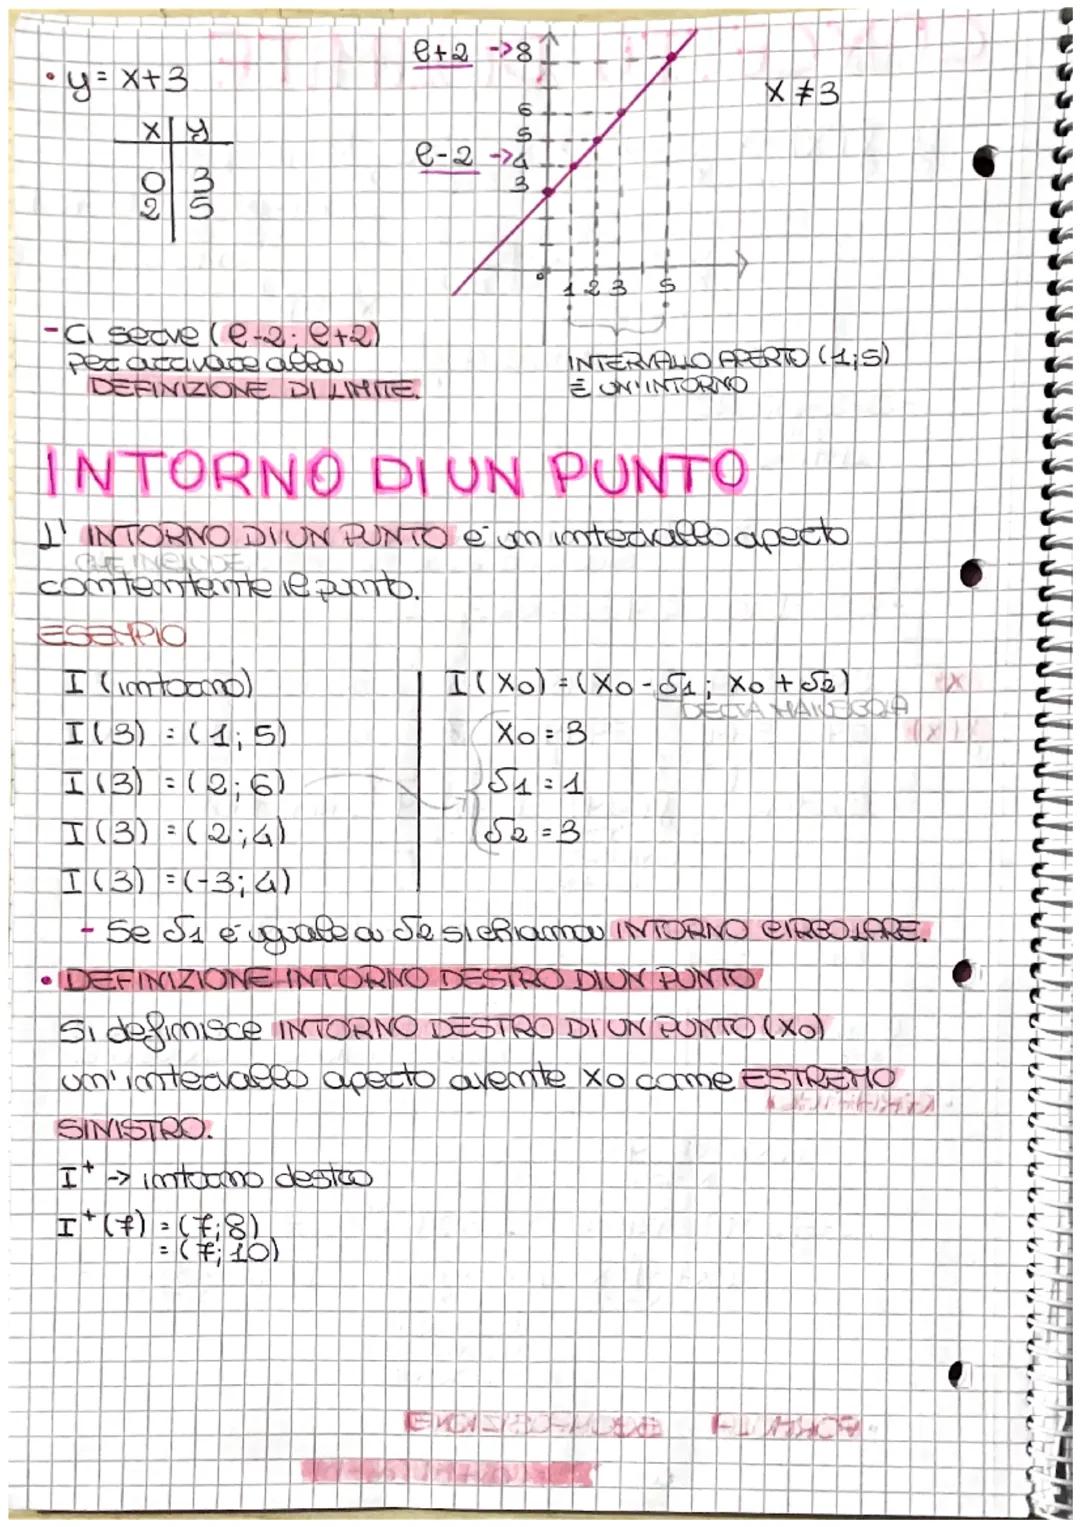 • y = x+3
x y
0 3
2 5
l+2 ->8
6
5
l-2 ->4
3
0 1 2 3 5
x ≠ 3
- Ci serve (l-2; l+2)
per arrivare alla
DEFINIZIONE DI LIMITE.
INTERVALLO APERTO (1;5)
È UN'INTORNO
INTORNO DI UN PUNTO
L' INTORNO DI UN PUNTO è un intervallo aperto
CHE INCLUDE
contentente il punto.
ESEMPIO
I (intorno)
I(3) = (1; 5)
I(3) = (2; 6)
I(3) = (2; 4)
I(3) = (-3; 4)
I(X0) = (X0 - δ1; X0 + δ2)
X0 = 3
δ1 = 1
δ2 = 3
- Se δ1 è uguale a δ2 si chiama INTORNO CIRCOLARE.
• DEFINIZIONE INTORNO DESTRO DI UN PUNTO
Si definisce INTORNO DESTRO DI UN PUNTO (X0)
un'intervallo aperto avente X0 come ESTREMO
SINISTRO.
I⁺ -> intorno destro
I⁺(7) = (7; 8)
= (7; 10)